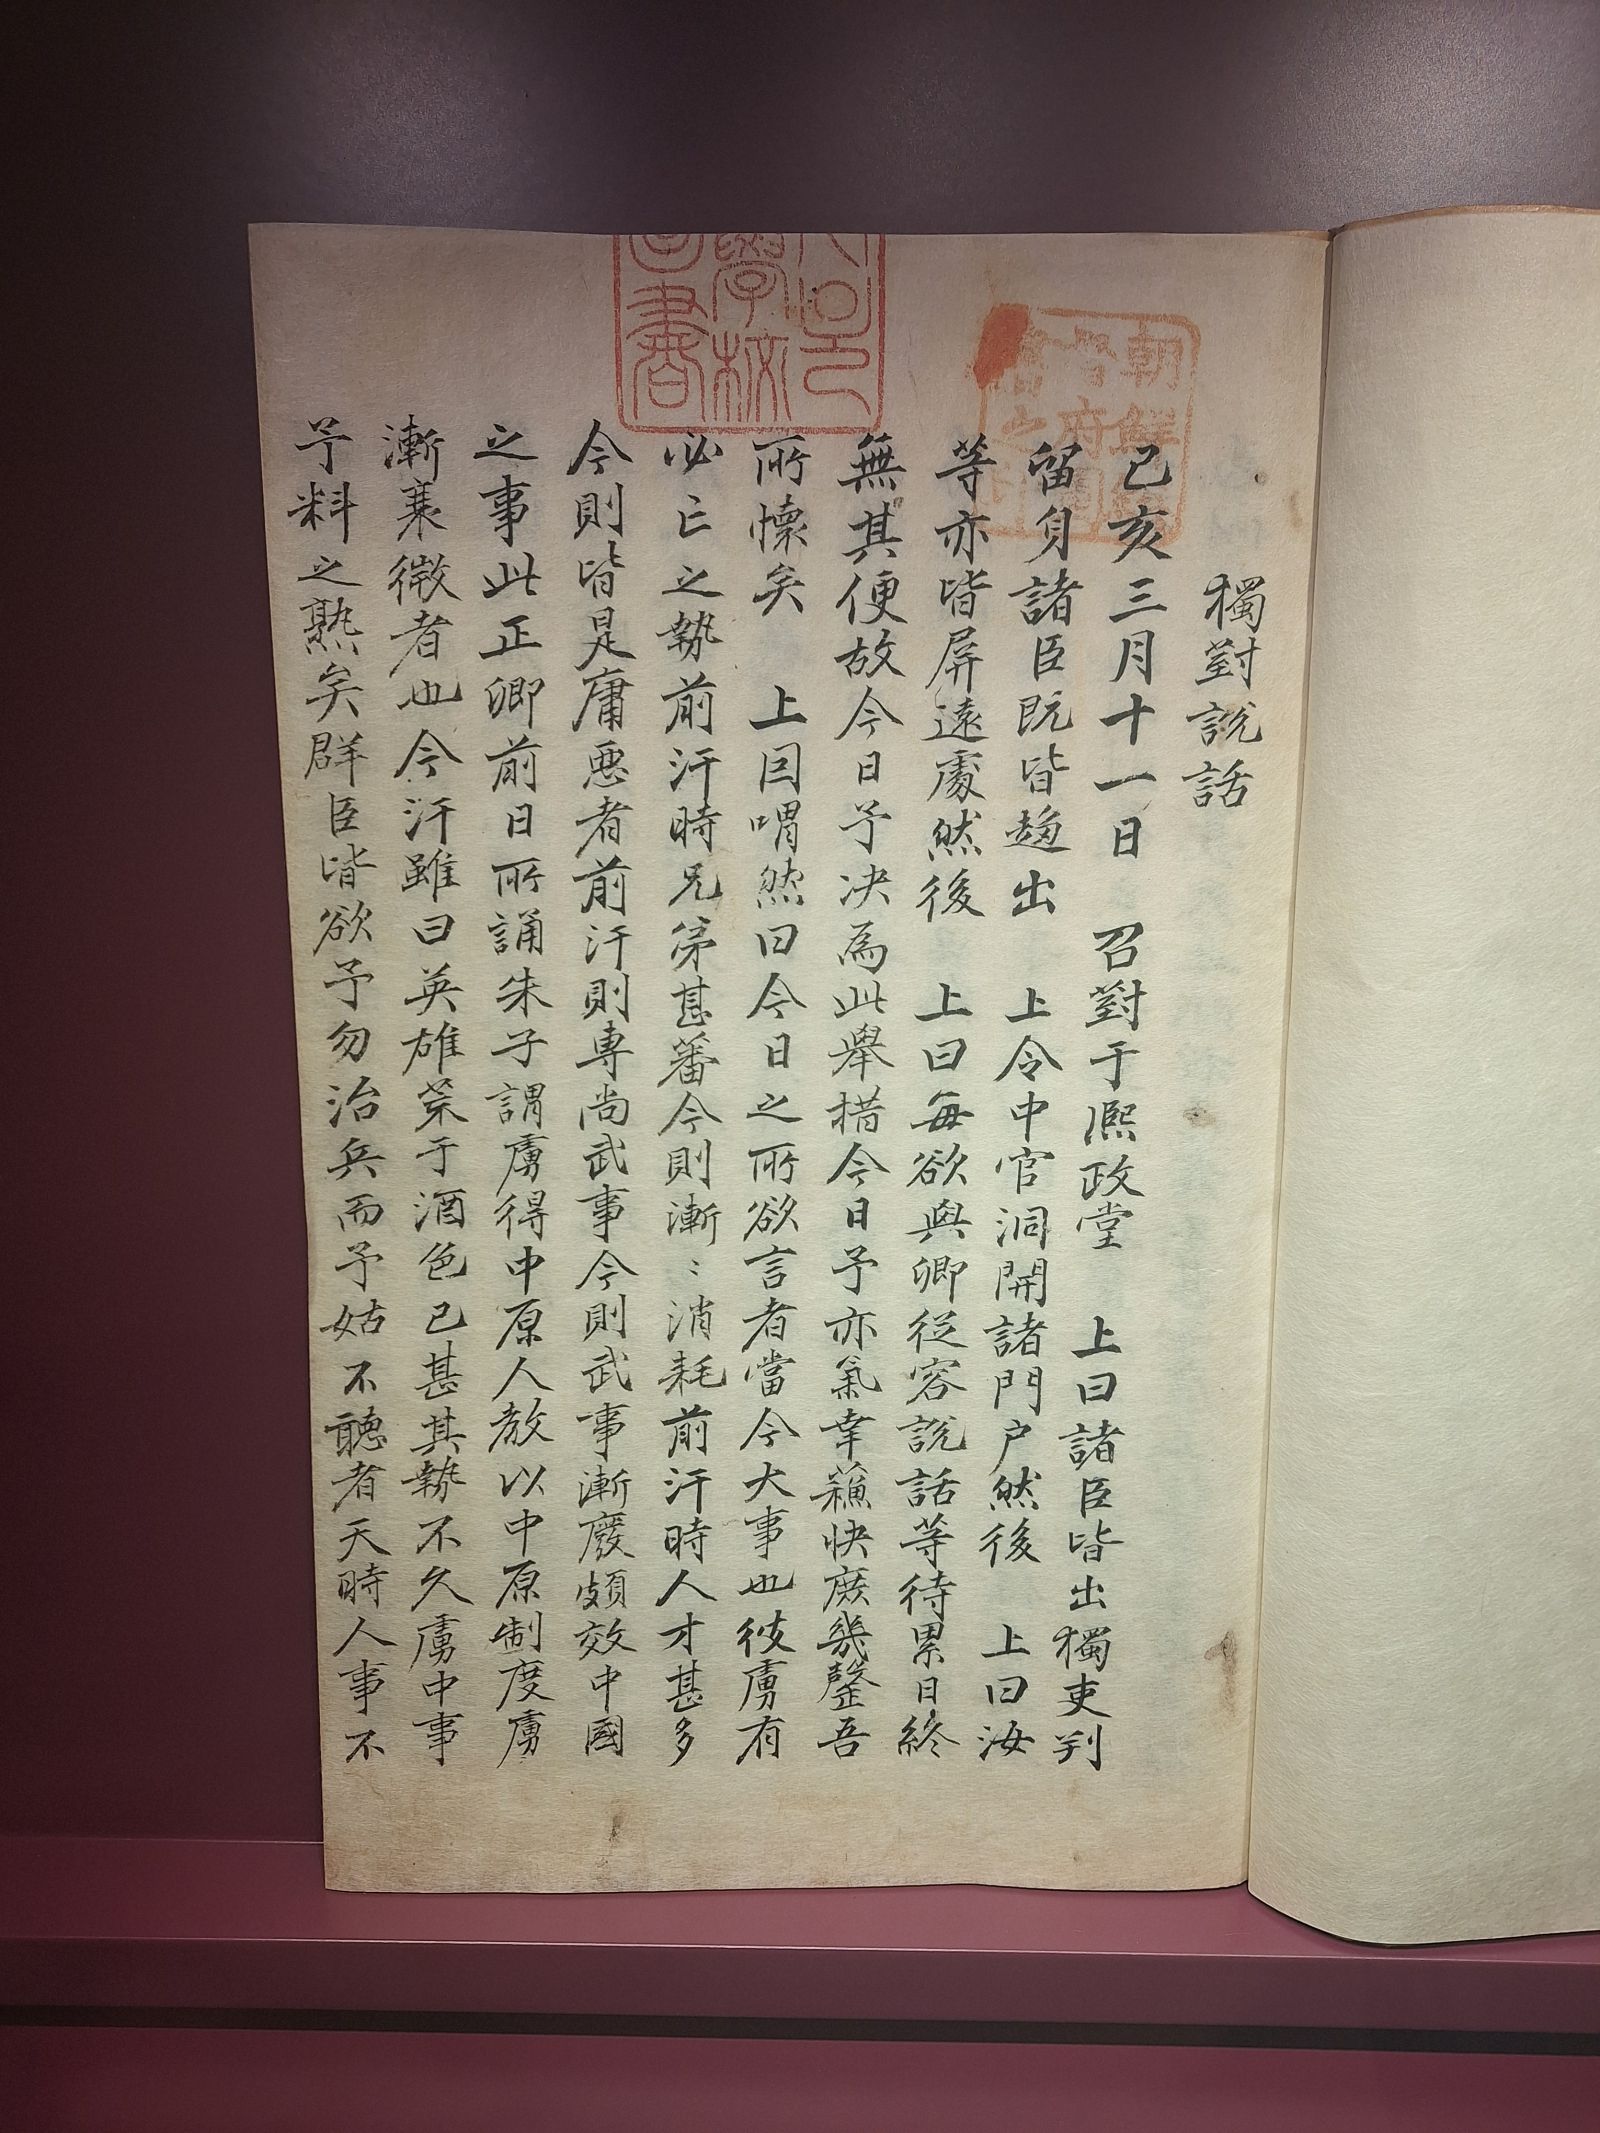 獨對說話
己亥三月十一日　召對于熙政堂　上曰諸臣皆出獨吏判
留身諸臣旣皆趨出　上令中官洞開諸門戶然後　上曰汝
等亦皆屛遠處然後　上曰每欲與卿從容說話等待累日終
無其便故今日予决爲此擧措今日予亦氣幸蘓快庶幾罄吾
所懷矣　上因喟然曰今日之所欲言者當今大事也彼虜有
必亡之勢前汗時兄弟甚蕃今則漸〻消耗前汗時人才甚多
今則皆是庸惡者前汗則專尚武事今則武事漸廢頗效中國
之事此正卿前日所誦朱子謂虜得中原人教以中原制度虜
漸衰微者也今汗雖曰英雄荒于酒色已甚其勢不久虜中事
予料之熟矣群臣皆欲予勿治兵而予姑不聽者天時人事不
朝鮮
府
之
學校
書